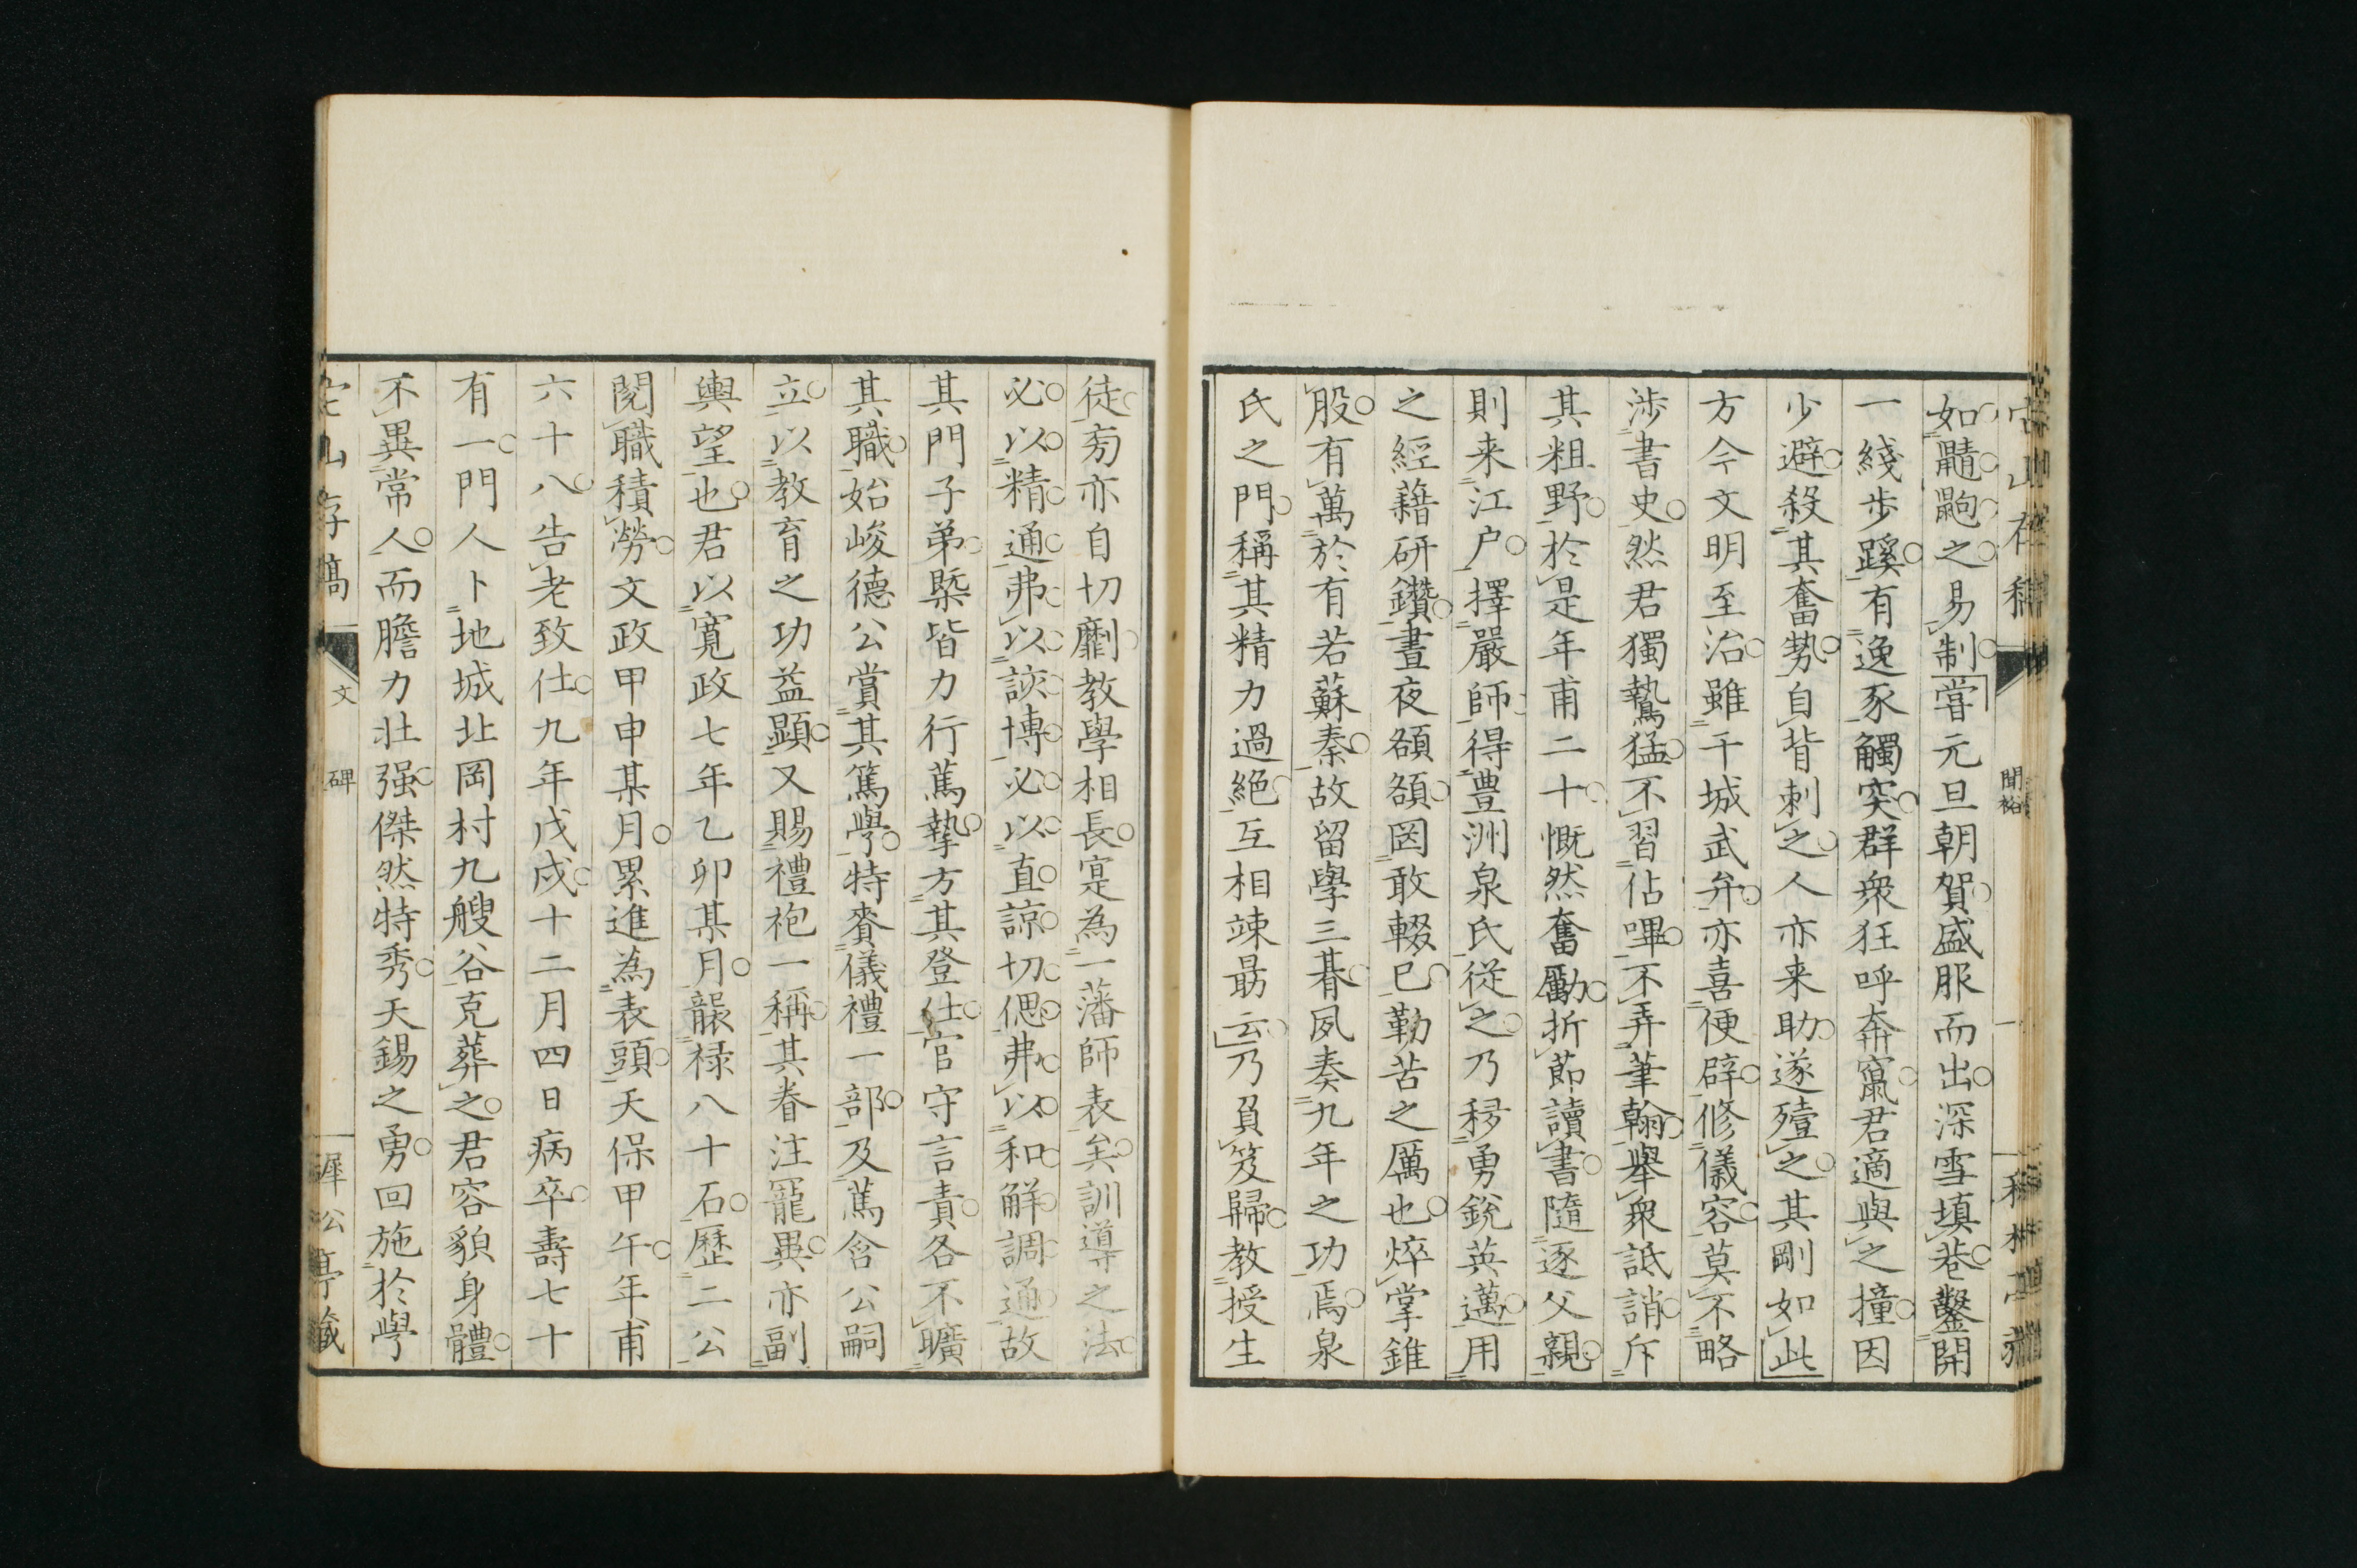 如鼷鼩之易制嘗元旦朝賀盛服而出深雪塡巷鑿開
一綫步蹊有逸豕觸突群衆狂呼奔竄君適與之撞因
少避殺其奮勢自背刺之人亦来助遂殪之其剛如此
方今文明至治雖干城武弁亦喜便辟修儀容莫不略
涉書史然君獨鷙猛不習佔嗶不弄筆翰擧衆詆誚斥
其粗野於是年甫二十慨然奮勵折節讀書隨逐父親
則来江户擇嚴師得豊洲泉氏從之乃移勇銳英邁用
之經藉研鑽晝夜頟頟罔敢輟已勤苦之厲也焠掌錐
股有萬於有若蘇秦故留學三朞夙奏九年之功焉泉
氏之門稱其精力過絶互相竦最云乃負笈歸教授生
徒旁亦自切劘教學相長寔為一藩師表矣訓導之法
必以精通弗以該博必以直諒切偲弗以和鮮調通故
其門子弟槩皆力行蔿摯方其登仕官守言責各不曠
其職始峻德公賞其篤學特賚儀禮一部及蔿含公嗣
立以教育之功益顯又賜禮袍一稱其眷注寵異亦副
輿望也君以寛政七年乙卯某月襲禄八十石歷二公
閲職積勞文政甲申某月累進為表頭天保甲午年甫
六十八告老致仕九年戊戌十二月四日病卒壽七十
有一門人卜地城北岡村九艘谷克葬之君容貌身體
不異常人而膽力壯强傑然特秀天錫之勇回施於學
文 碑